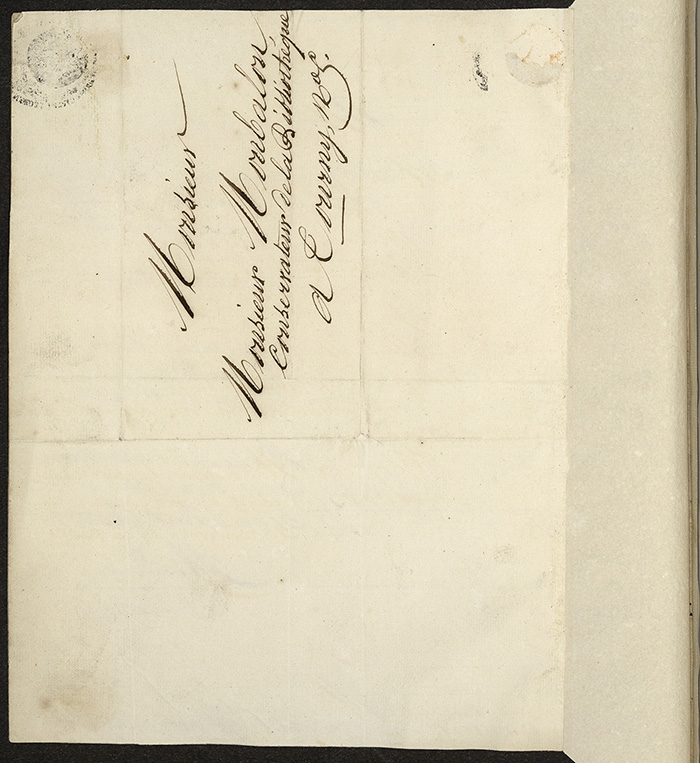 Monsieur
Monsieur Monbalon
Conservateur de la Bibliothèque
a Tourny, No